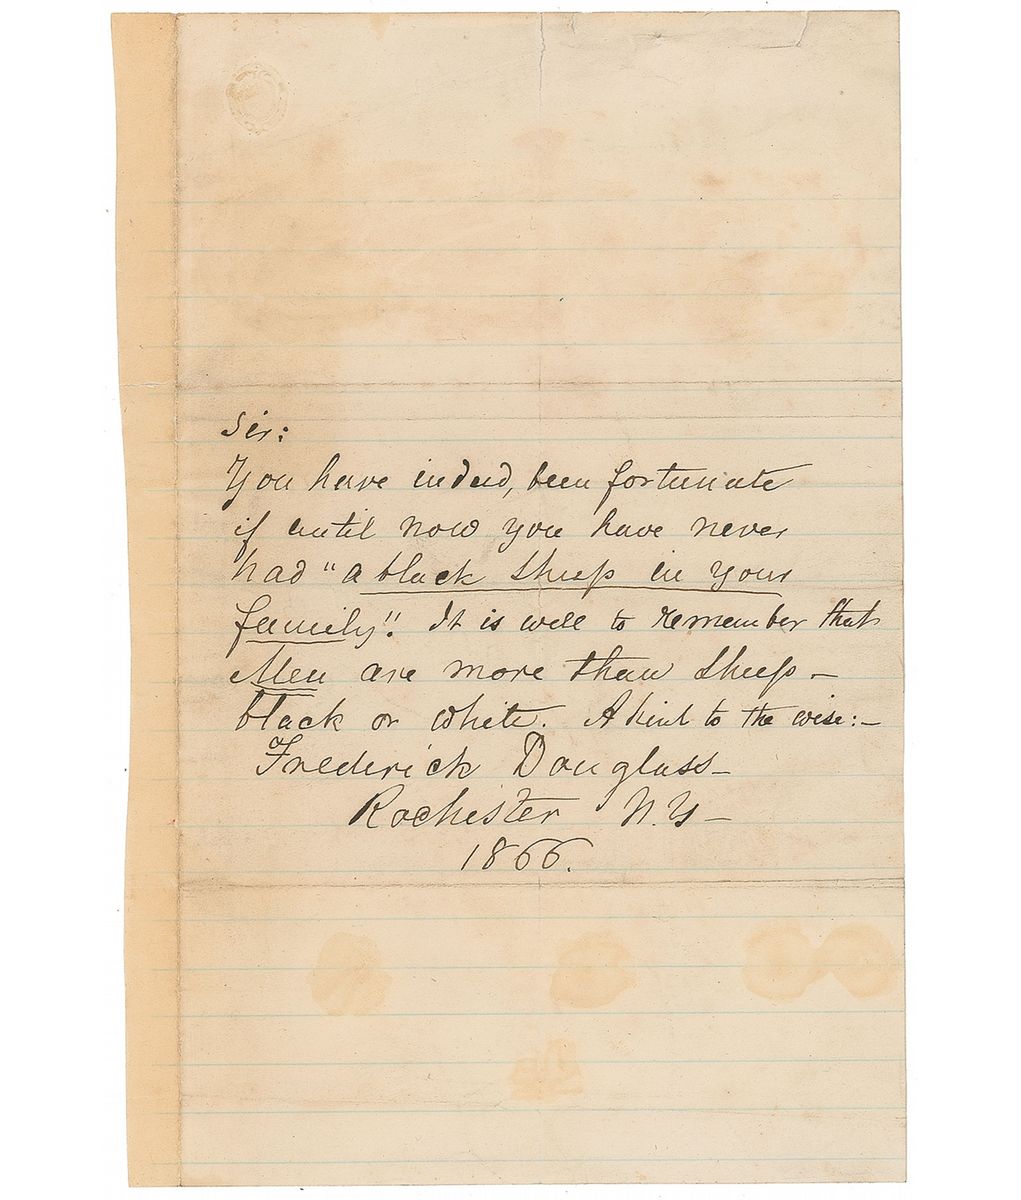 Sir:
You have indeed, been fortunate
if until now you have never
had "a black sheep in your
family"! It is well to remember that
Men are more than sheep –
black or white. A hint to the wise:–
Frederick Douglass –
Rochester N.Y –
1866.